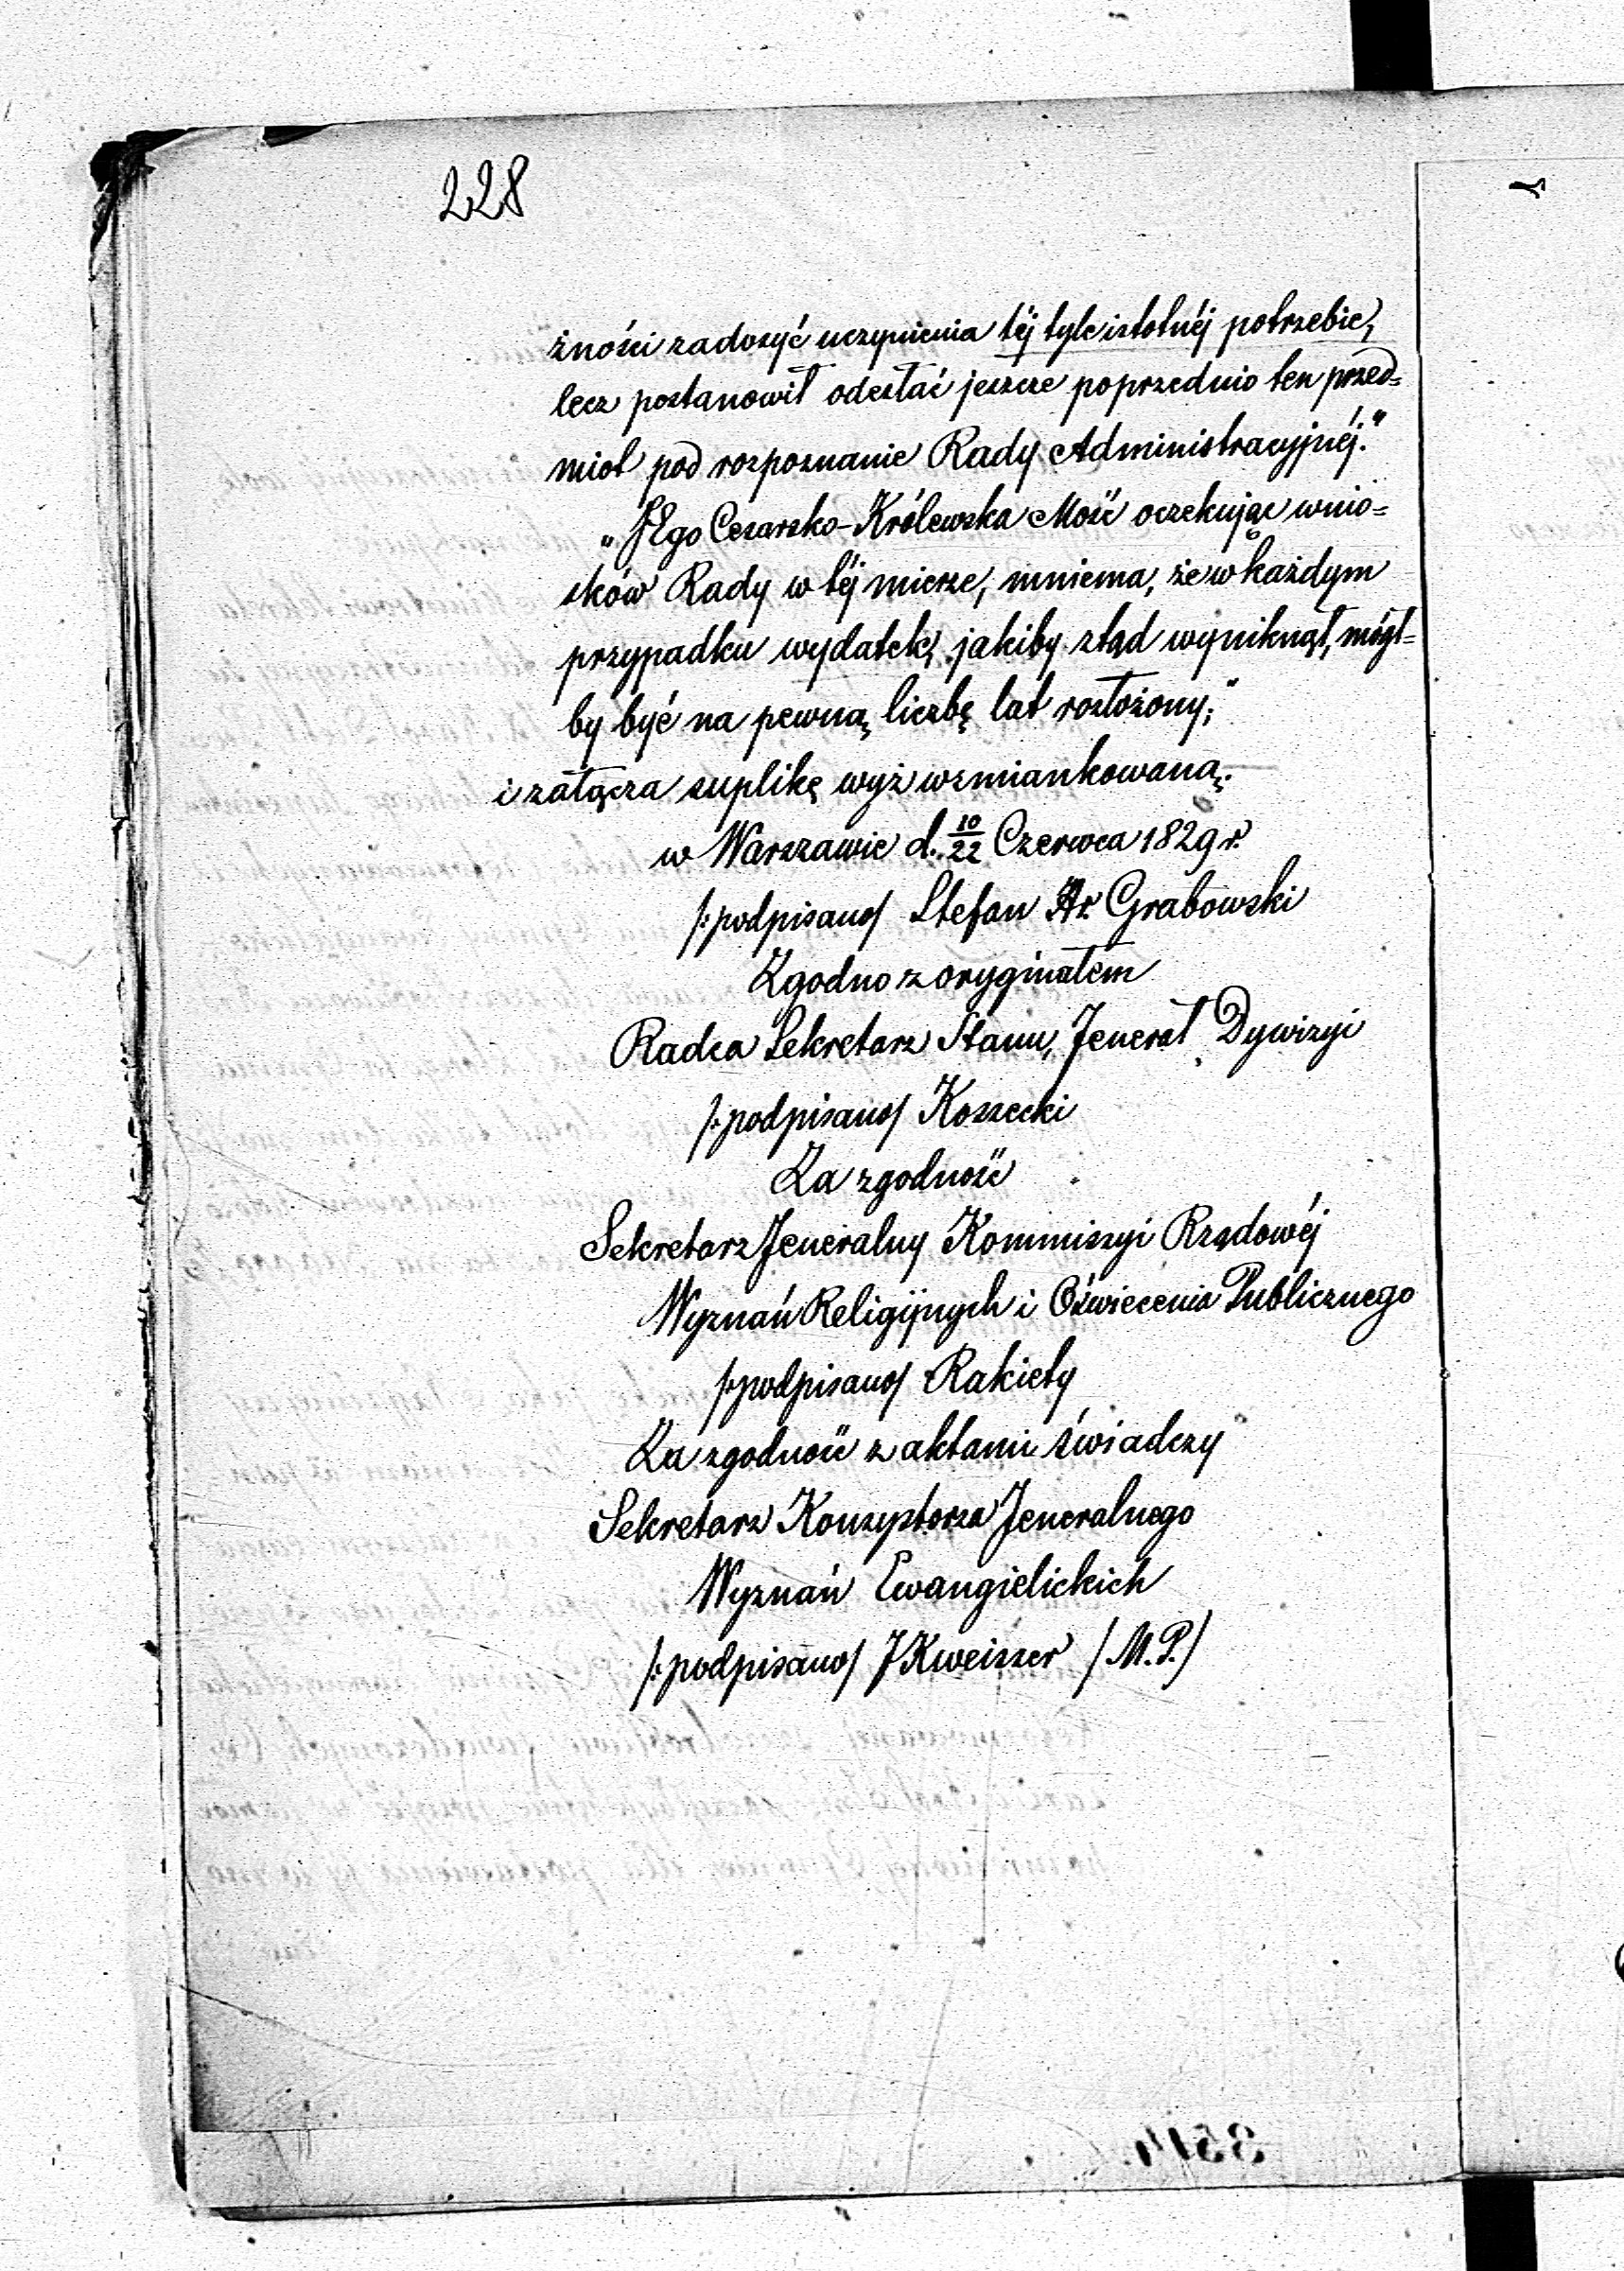 228
żności zadosyć uczynienia téj tyle istotnéj potrzebie,
lecz postanowił odesłać jeszcze poprzednio ten przed=
miot pod rozpoznanie Rady Administracyjnéj."
„JEgo Cesarsko-Królewska Mość oczekując wnio=
sków Rady w téj mierze, mniema, że w każdym
przypadku wydatek, jakiby ztąd wyniknął, mógł=
by być na pewną liczbę lat rozłożony;"
i załącza suplikę wyż wzmiankowaną.
w Warszawie d. 10/22 Czerwca 1829 r.
/:podpisano/ Stefan Hr. Grabowski
Zgodno z oryginałem
Radca Sekretarz Stanu, Jenerał Dywizyi
/:podpisano/ Kossecki
Za zgodność
Sekretarz Jeneralny Kommissyi Rządowéj
Wyznań Religijnych i Oświecenia Publicznego
/:podpisano/ Rakiety
Za zgodność z aktami świadczy
Sekretarz Konsystorza Jeneralnego
Wyznań Ewangielickich
/:podpisano/ J Kweisser /M.P./